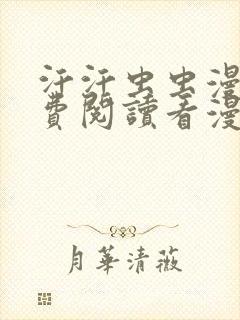 汗汗虫虫漫
費閱讀看漫
月華清薇